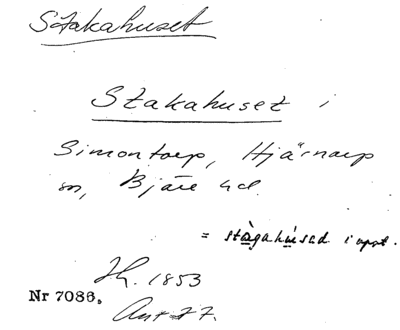 Stakahuset
Stakahuset i
Simontorp, Hjärnarp
sn, Bjäre hd.
= stàgahúsad i uppt.
Jh. 1853
Nr 7086,
Ant 27.